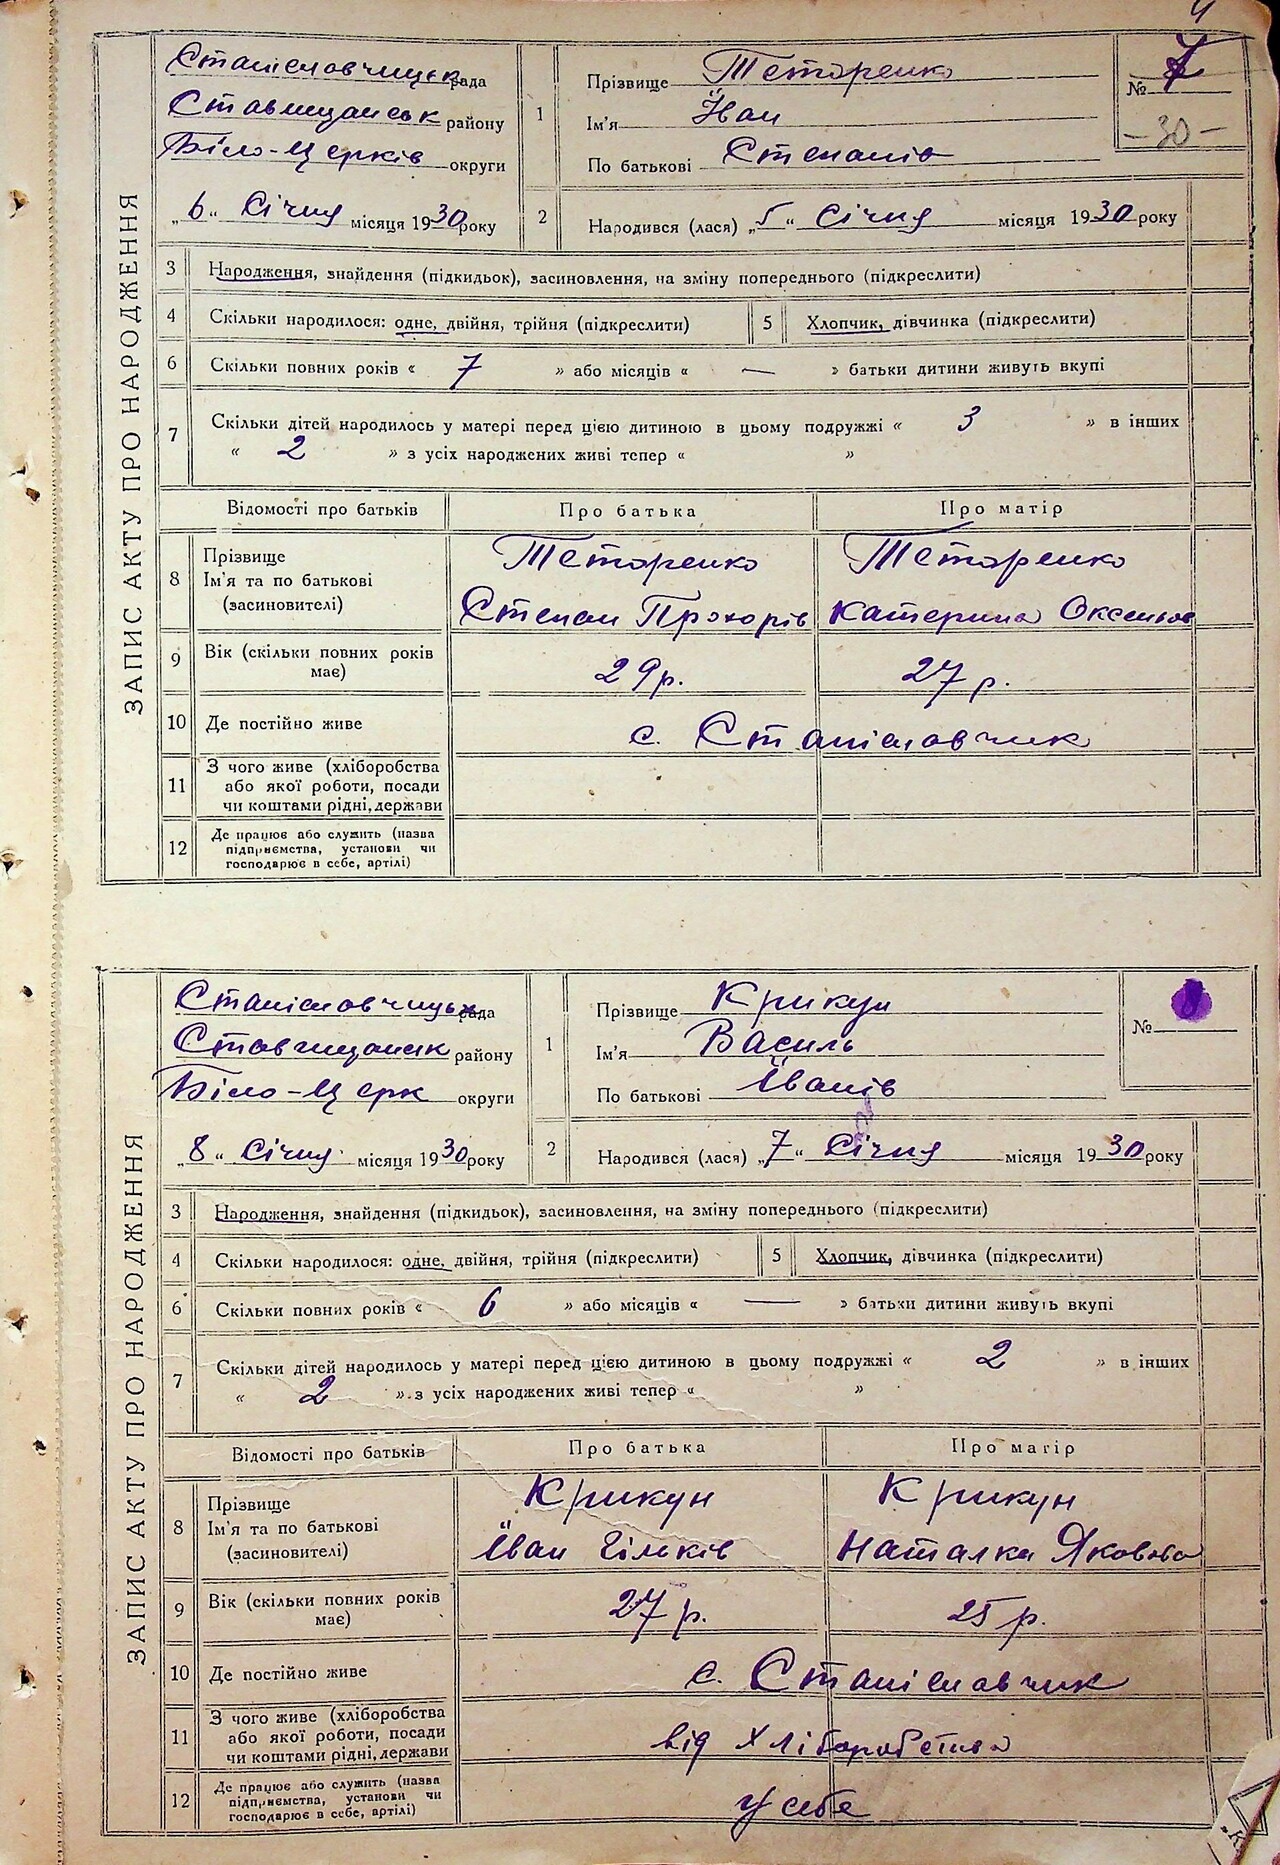 4
ЗАПИС АКТУ ПРО НАРОДЖЕННЯ
Станіславчицьк рада
Ставищанськ району
Біло-Церків округи
„6“ Січня місяця 1930 року
1
Прізвище Теторенко
Ім'я Іван
По батькові Степанів
№ 7
-30-
2 Народився (лася) „5“ Січня місяця 1930 року
3 Народження, знайдення (підкидьок), засиновлення, на зміну попереднього (підкреслити)
4 Скільки народилося: одне, двійня, трійня (підкреслити) 5 Хлопчик, дівчинка (підкреслити)
6 Скільки повних років « 7 » або місяців « — » батьки дитини живуть вкупі
7 Скільки дітей народилось у матері перед цією дитиною в цьому подружжі « 3 » в інших
« 2 » з усіх народжених живі тепер « »
Відомості про батьків Про батька Про матір
8 Прізвище Теторенко Теторенко
Ім'я та по батькові
(засиновителі) Степан Прохорів Катерина
9 Вік (скільки повних років має) 29 р. 27 р.
10 Де постійно живе с. Станіславчик
11 З чого живе (хліборобства
або якої роботи, посади
чи коштами рідні, держави
12 Де працює або служить (назва
підприємства, установи чи
господарює в себе, артілі)
ЗАПИС АКТУ ПРО НАРОДЖЕННЯ
Станіславчицьк рада
Ставищанськ району
Біло-Церк округи
„8“ Січня місяця 1930 року
1
Прізвище Крикун
Ім'я Василь
По батькові Іванів
№ 8
2 Народився (лася) „7“ Січня місяця 1930 року
3 Народження, знайдення (підкидьок), засиновлення, на зміну попереднього (підкреслити)
4 Скільки народилося: одне, двійня, трійня (підкреслити) 5 Хлопчик, дівчинка (підкреслити)
6 Скільки повних років « 6 » або місяців « — » батьки дитини живуть вкупі
7 Скільки дітей народилось у матері перед цією дитиною в цьому подружжі « 2 » в інших
« 2 » з усіх народжених живі тепер « »
Відомості про батьків Про батька Про матір
8 Прізвище Крикун Крикун
Ім'я та по батькові
(засиновителі) Іван Гільків Наталка Яковова
9 Вік (скільки повних років має) 27 р. 25 р.
10 Де постійно живе с. Станіславчик
11 З чого живе (хліборобства
або якої роботи, посади
чи коштами рідні, держави від хліборобства
12 Де працює або служить (назва
підприємства, установи чи
господарює в себе, артілі) у себе